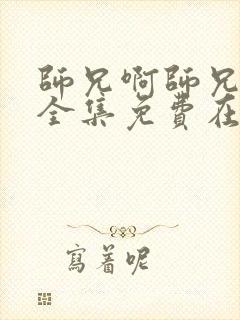 師兄啊師兄
全集免費在
寫着呢